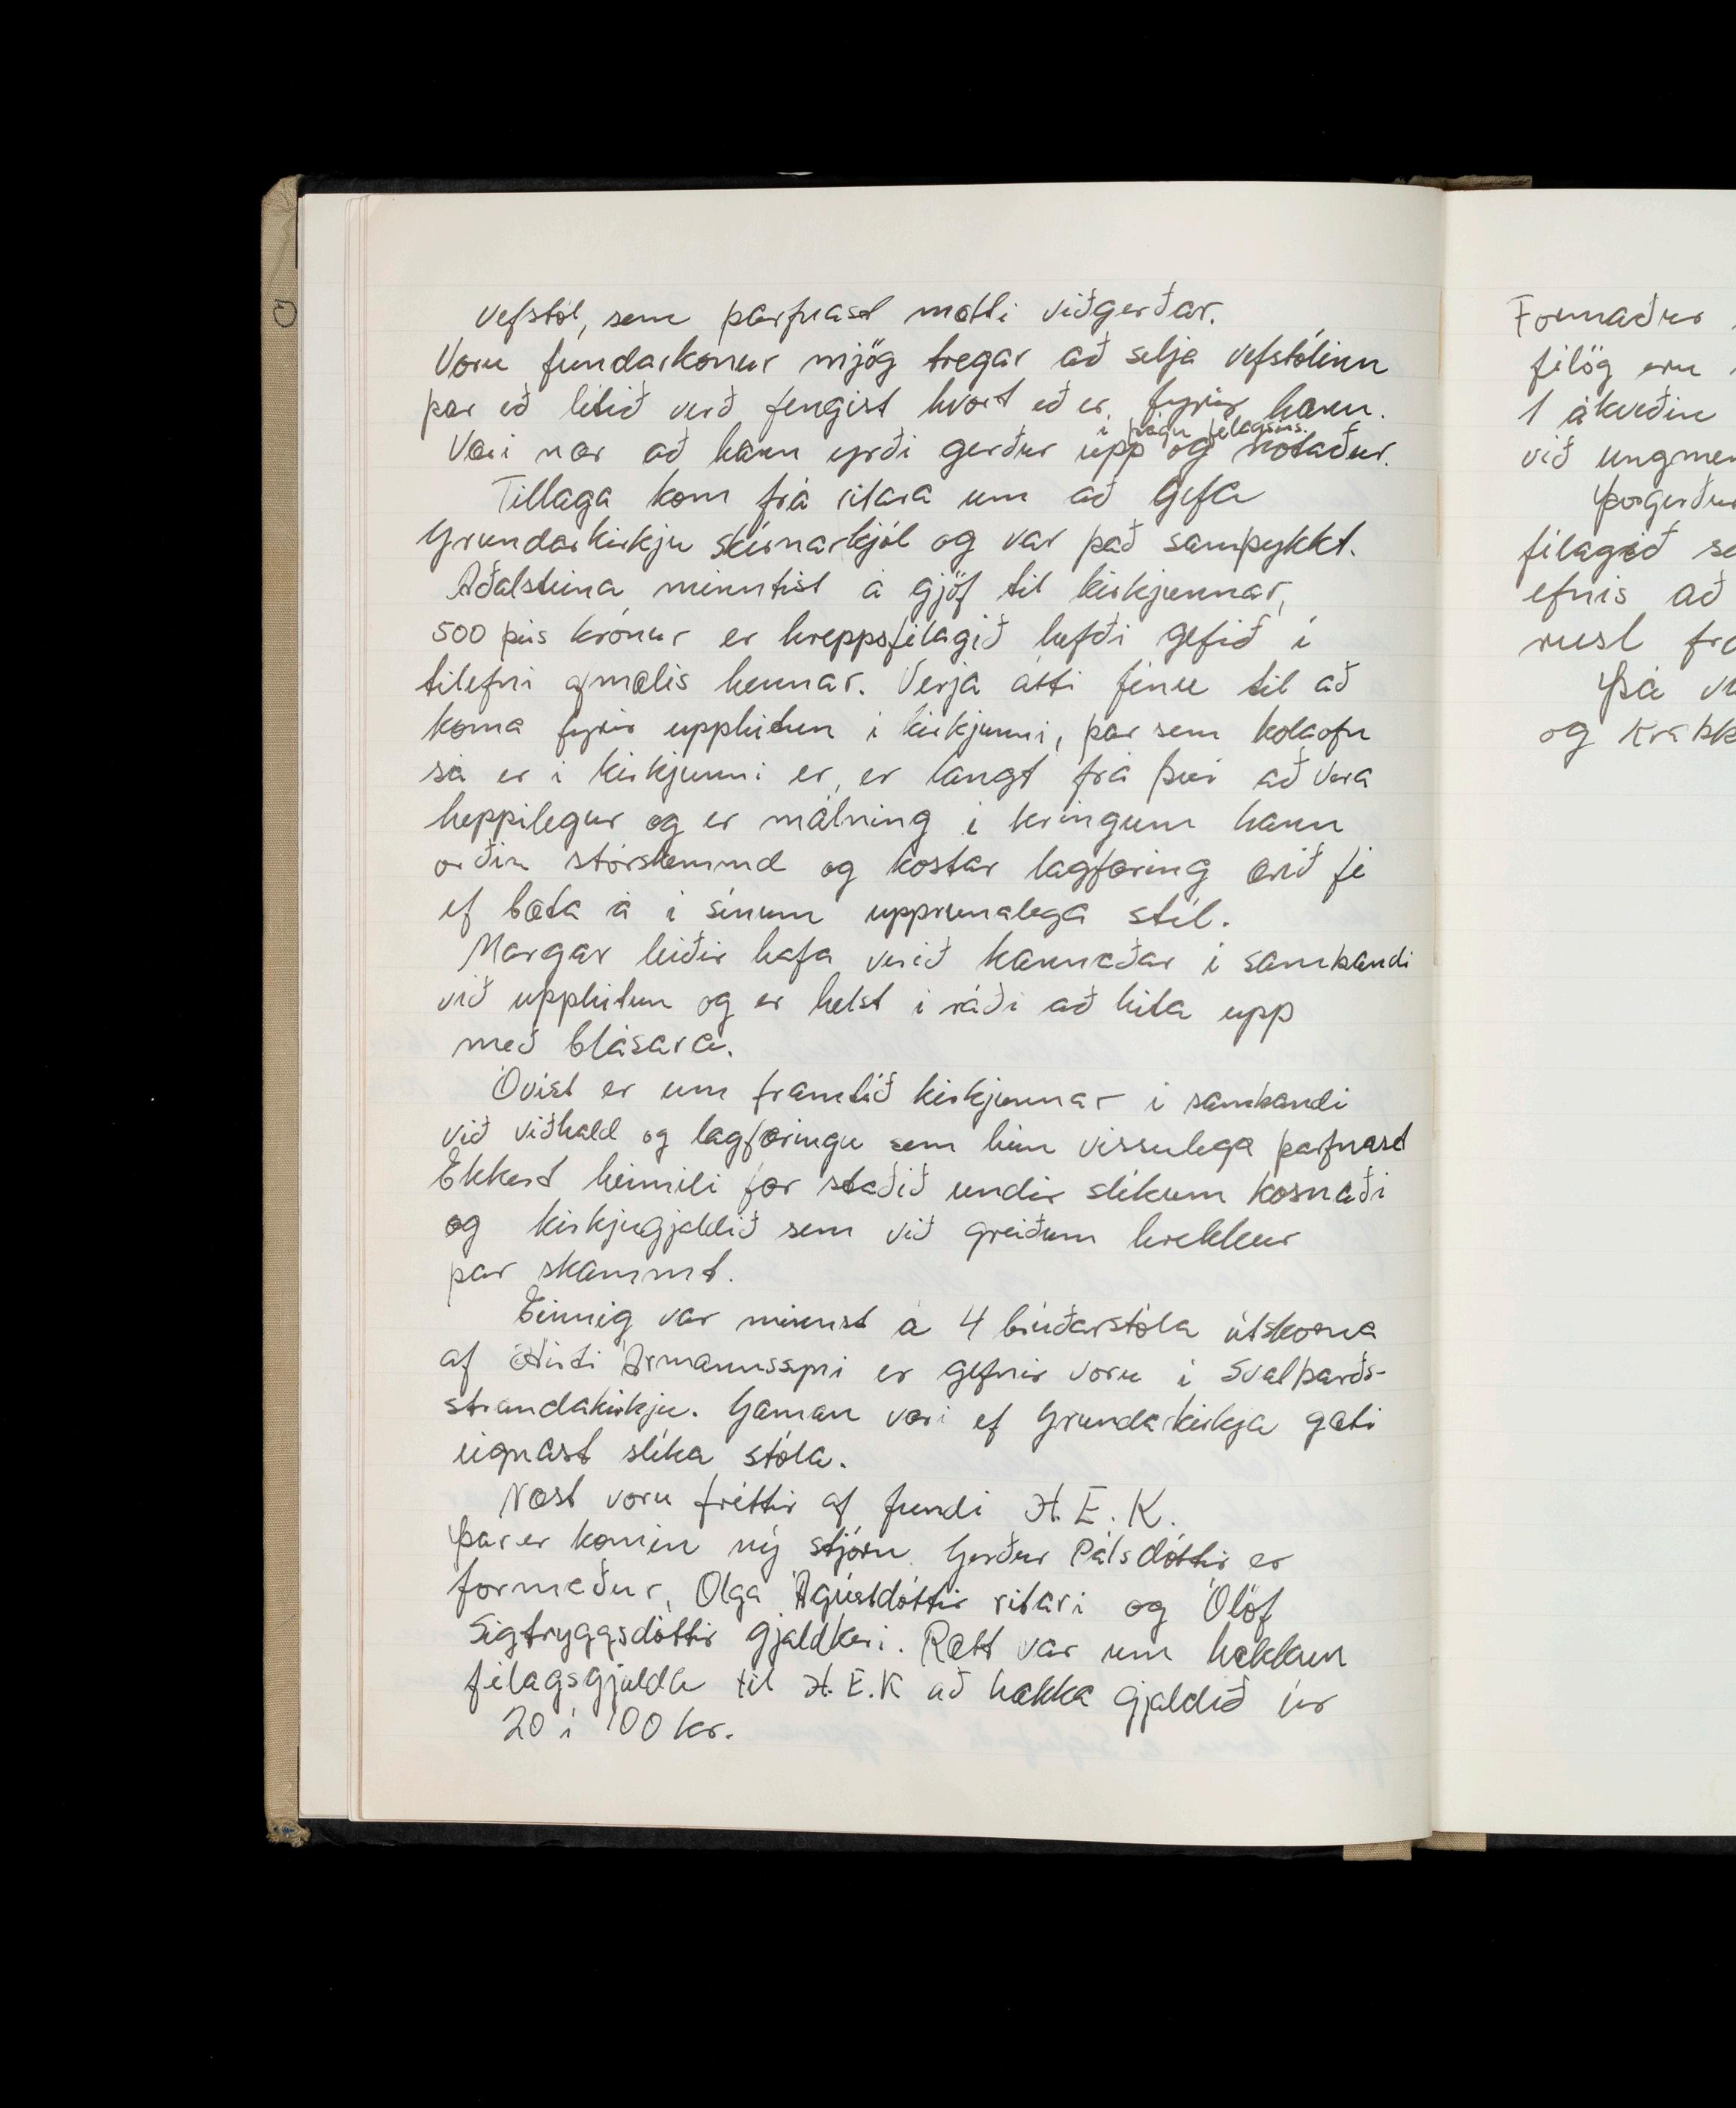 vefstól, sem þarfnast mætti viðgerðar.
Voru fundarkonur mjög tregar að selja vefstólinn
þar eð lítið verð fengist hvort eð er fyrir hann.
í þágu félagsins.
Væri nær að hann yrði gerður upp og notaður.
Tillaga kom frá ritara um að gefa
Grundarkirkju skírnarkjól og var það samþykkt.
Aðalsteina minntist á gjöf til kirkjunnar,
500 þús krónur er hreppsfélagið hefði gefið í
tilefni afmælis hennar. Verja átti fénu til að
koma fyrir upphitun í kirkjunni, þar sem kolaofn
sá er í kirkjunni er, er langt frá því að vera
heppilegur og er málning í kringum hann
orðin stórskemmd og kostar lagfæring ærið fé
ef bæta á í sínum upprunalega stíl.
Margar leiðir hafa verið kannaðar í sambandi
við upphitun og er helst í ráði að hita upp
með blásara.
Óvíst er um framtíð kirkjunnar í sambandi
við viðhald og lagfæringu sem hún vissulega þarfnast
Ekkert heimili fær staðið undir slíkum kosnaði
og kirkjugjaldið sem við greiðum hrekkur
þar skammt.
Einnig var minnst á 4 brúðarstóla útskorna
af Ármannssyni er gefnir voru í Svalbarðs-
strandakirkju. Gaman væri ef Grundarkirkja gæti
eignast slíka stóla.
Næst voru fréttir af fundi H.E.K.
Þar er komin ný stjórn. Gerður Pálsdóttir er
formaður, Olga Ágústdóttir ritari og Ólöf
Sigtryggsdóttir gjaldkeri. Rætt var um hækkun
félagsgjalda til H.E.K að hækka gjaldið úr
20 í 100 kr.
Formaður
félög eru
1 ákveðin
við ungmen
Þorgerður
félagið se
efnis að
rusl fra
Þá v
og krakk